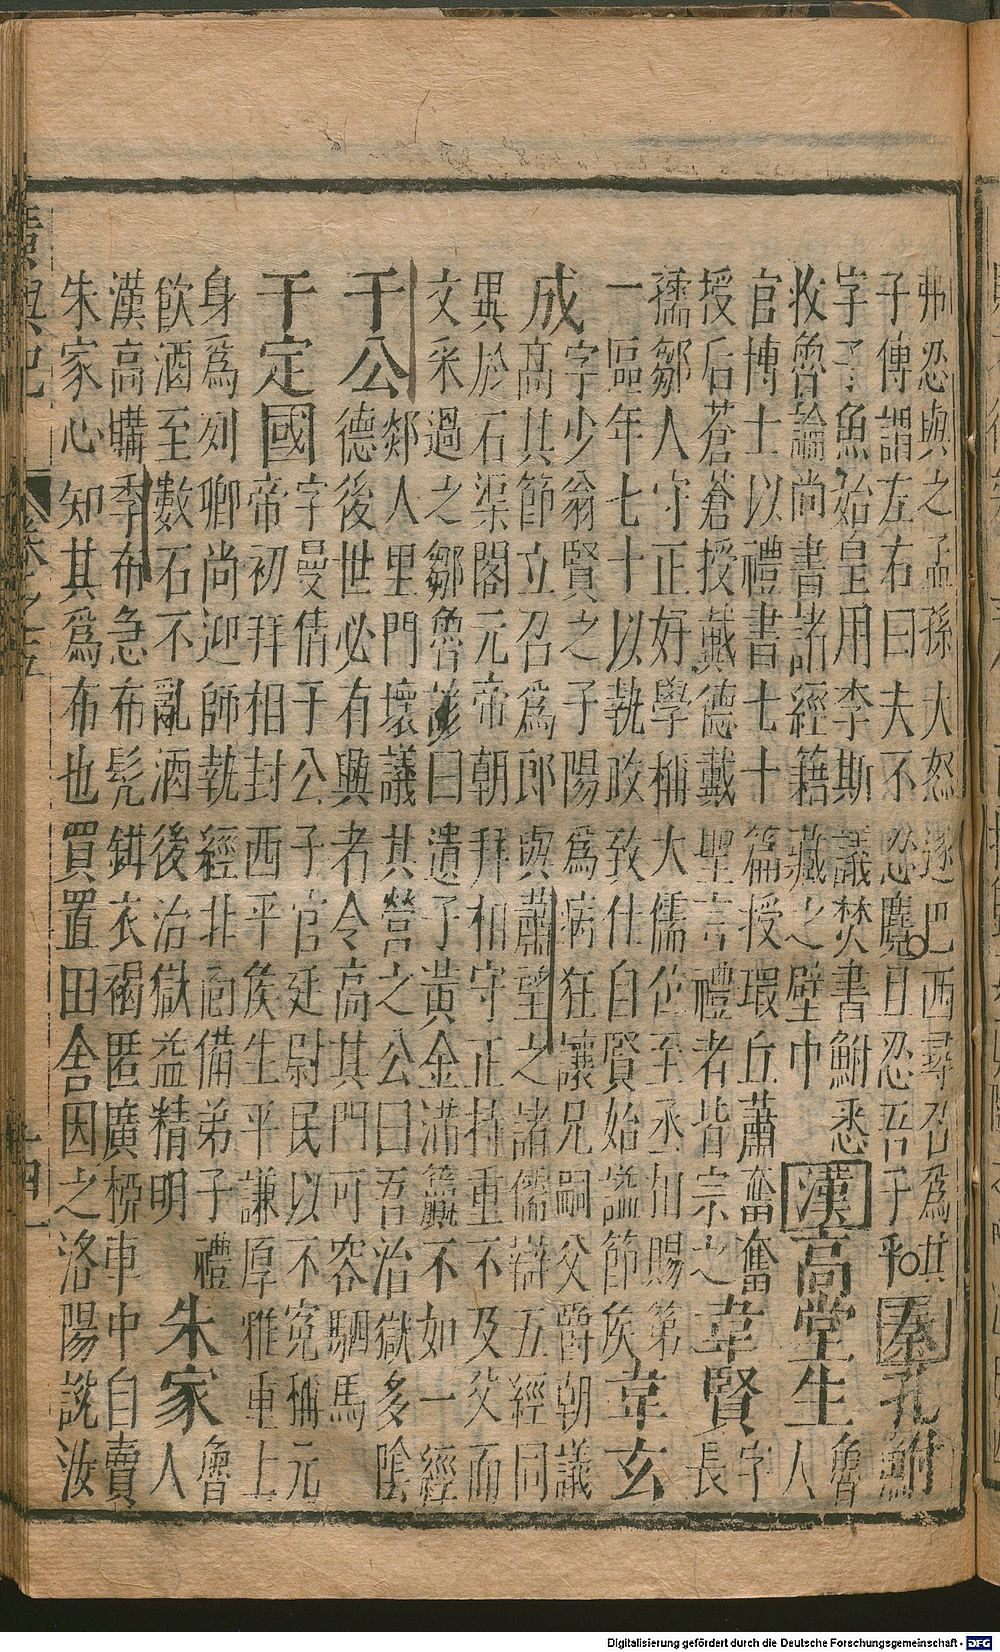 弗忍與之孟孫大怒逐巴西尋召爲其
子傅謂左右曰夫不忍麑且忍吾子乎
秦孔鮒
字子魚始皇用李斯議焚書鮒悉
收魯論尚書諸經籍藏之壁中
漢高堂生
魯人
官博士以禮書七十篇授瑕丘蕭奮奮
授后蒼蒼授戴德戴聖言禮者皆宗之
韋賢
字長
孺鄒人守正好學稱大儒位至丞相賜第
一區年七十以執政致仕自賢始謚節侯
韋玄
成
字少翁賢之子陽爲病狂讓兄嗣父爵朝議
高其節立召爲郎與蕭望之諸儒辯五經同
異於石渠閣元帝朝拜相守正持重不及父而
文采過之鄒魯諺曰遺子黃金滿籯不如一經
于公
郯人里門壞議其營之公曰吾治獄多陰
德後世必有興者令高其門可容駟馬
于定國
字曼倩于公子官廷尉民以不冤稱元
帝初拜相封西平侯生平謙厚雅重上
身爲列卿尚迎師執經北面備弟子禮
飲酒至數石不亂酒後治獄益精明
朱家
魯人
漢高購季布急布髡鉗衣褐匿廣柳車中自賣
朱家心知其爲布也買置田舍因之洛陽說汝
廣輿記
卷之五
十四
Digitalisierung gefördert durch die Deutsche Forschungsgemeinschaft - DFG